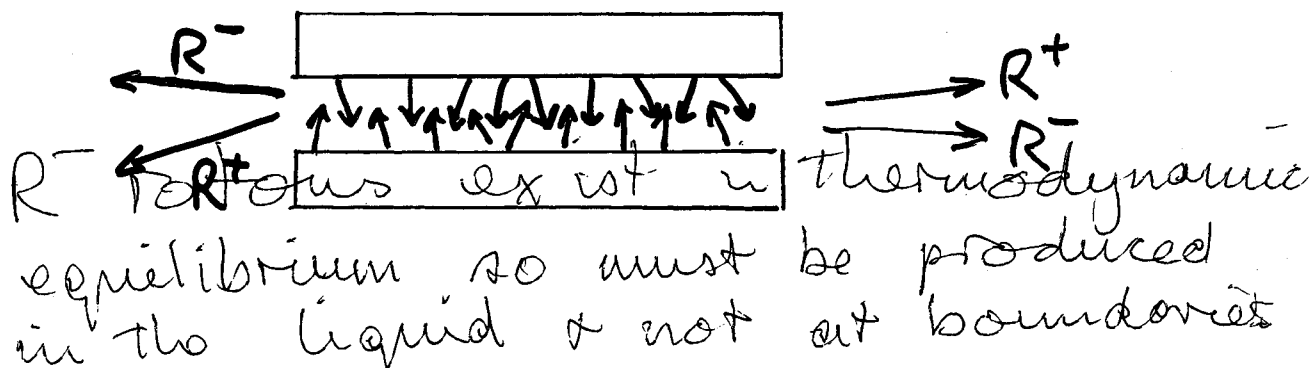 R⁻
R⁺
R⁻
R⁺
R⁻ rotons exist in thermodynamic
equilibrium so must be produced
in the liquid & not at boundaries